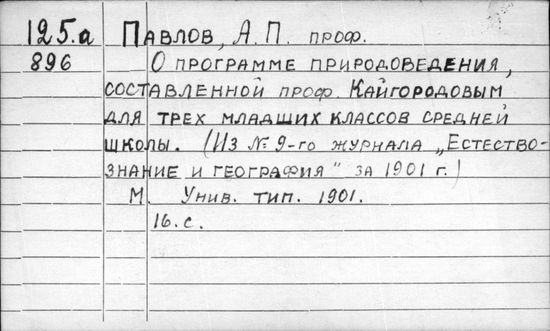 125.а Павлов, А.П. проф.
896 О программе природоведения,
составленной проф. Кайгородовым
для трех младших классов средней
школы. (Из № 9-го журнала „Естество-
знание и география" за 1901 г.)
М. Унив. тип. 1901.
16.с.